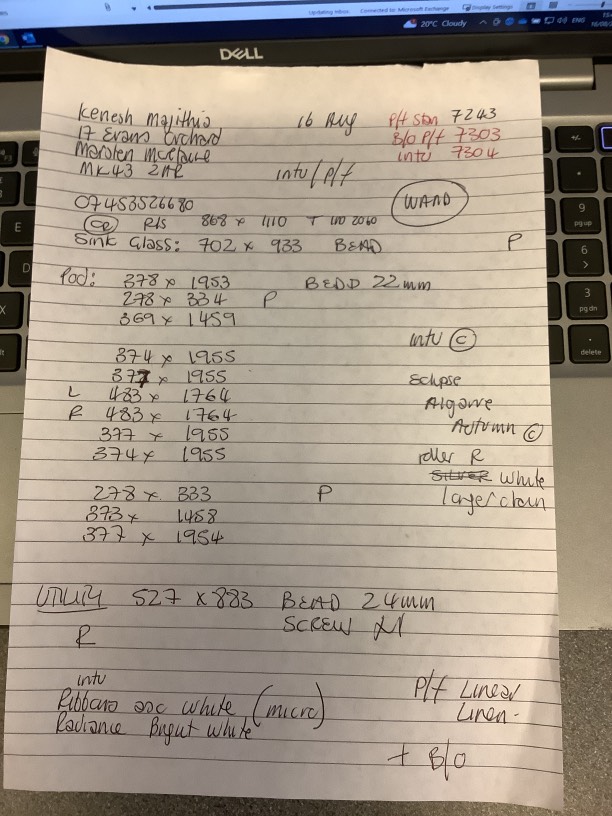 Updating Inbox Connected to: Microsoft Exchange Display Settings
20°C Cloudy ENG
DELL
Kenesh Majithia 16 Aug P/f Stan 7243
17 Evans Orchard B/o P/f 7303
Marsten intu 7304
MK43 intu/P/f
07453526680 WAND
R/s 868 x 1110
Sink Glass: 702 x 933 BEAD P
Pod: 378 x 1953 BEDD 22mm
278 x 334 P
369 x 1459
intu C
374 x 1955
377 x 1955 Eclipse
L 483 x 1764 Algarve
R 483 x 1764 Autumn C
377 x 1955
374 x 1955 roller R
SILVER White
278 x 333 P large/chain
373 x 1458
377 x 1954
UTILITY 527 x 883 BEAD 24mm
SCREW
R
intu P/f Linear
white (micro) Linen
Radiance Brgut white
+ B/o
E
D
X
9
pg up
6
3
pg dn
delete